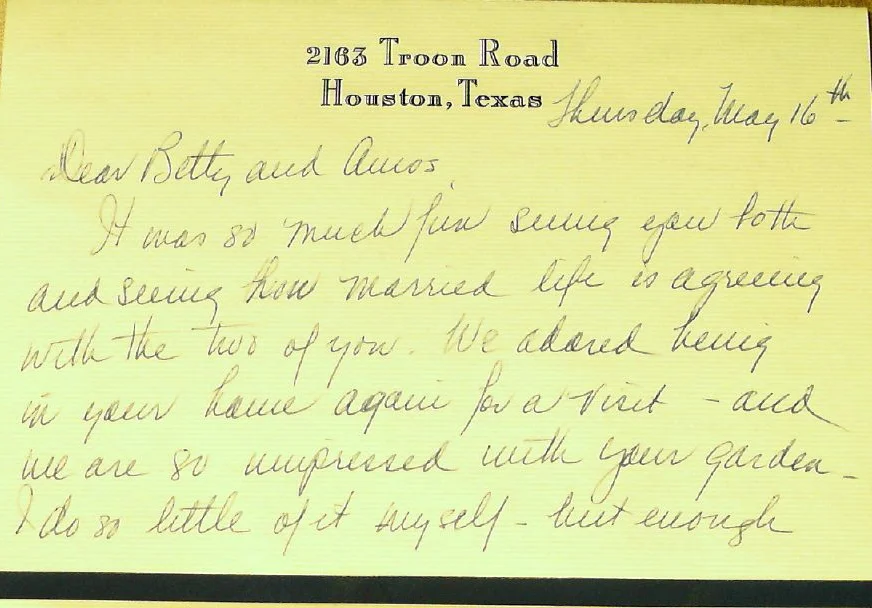 2163 Troon Road
Houston, Texas
Thursday, May 16th
Dear Betty and Amos,
It was so much fun seeing you both
and seeing how married life is agreeing
with the two of you. We adored being
in your home again for a visit - and
we are so impressed with your garden -
I do so little of it myself - but enough